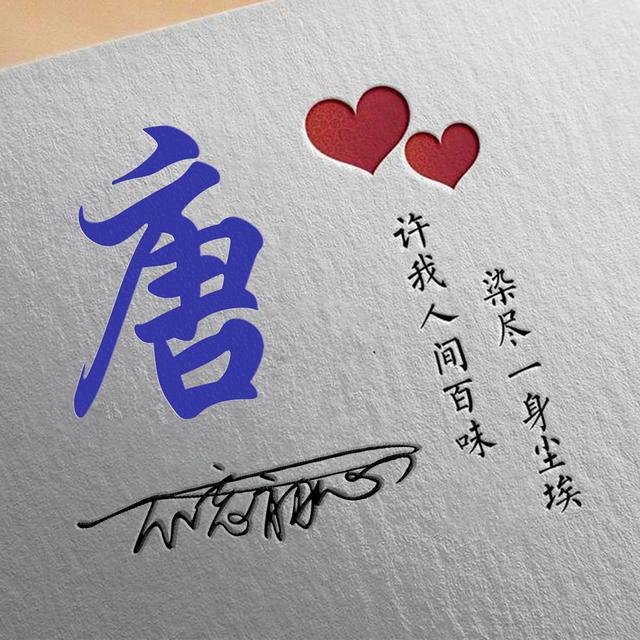 唐
许我人间百味
染尽一身尘埃